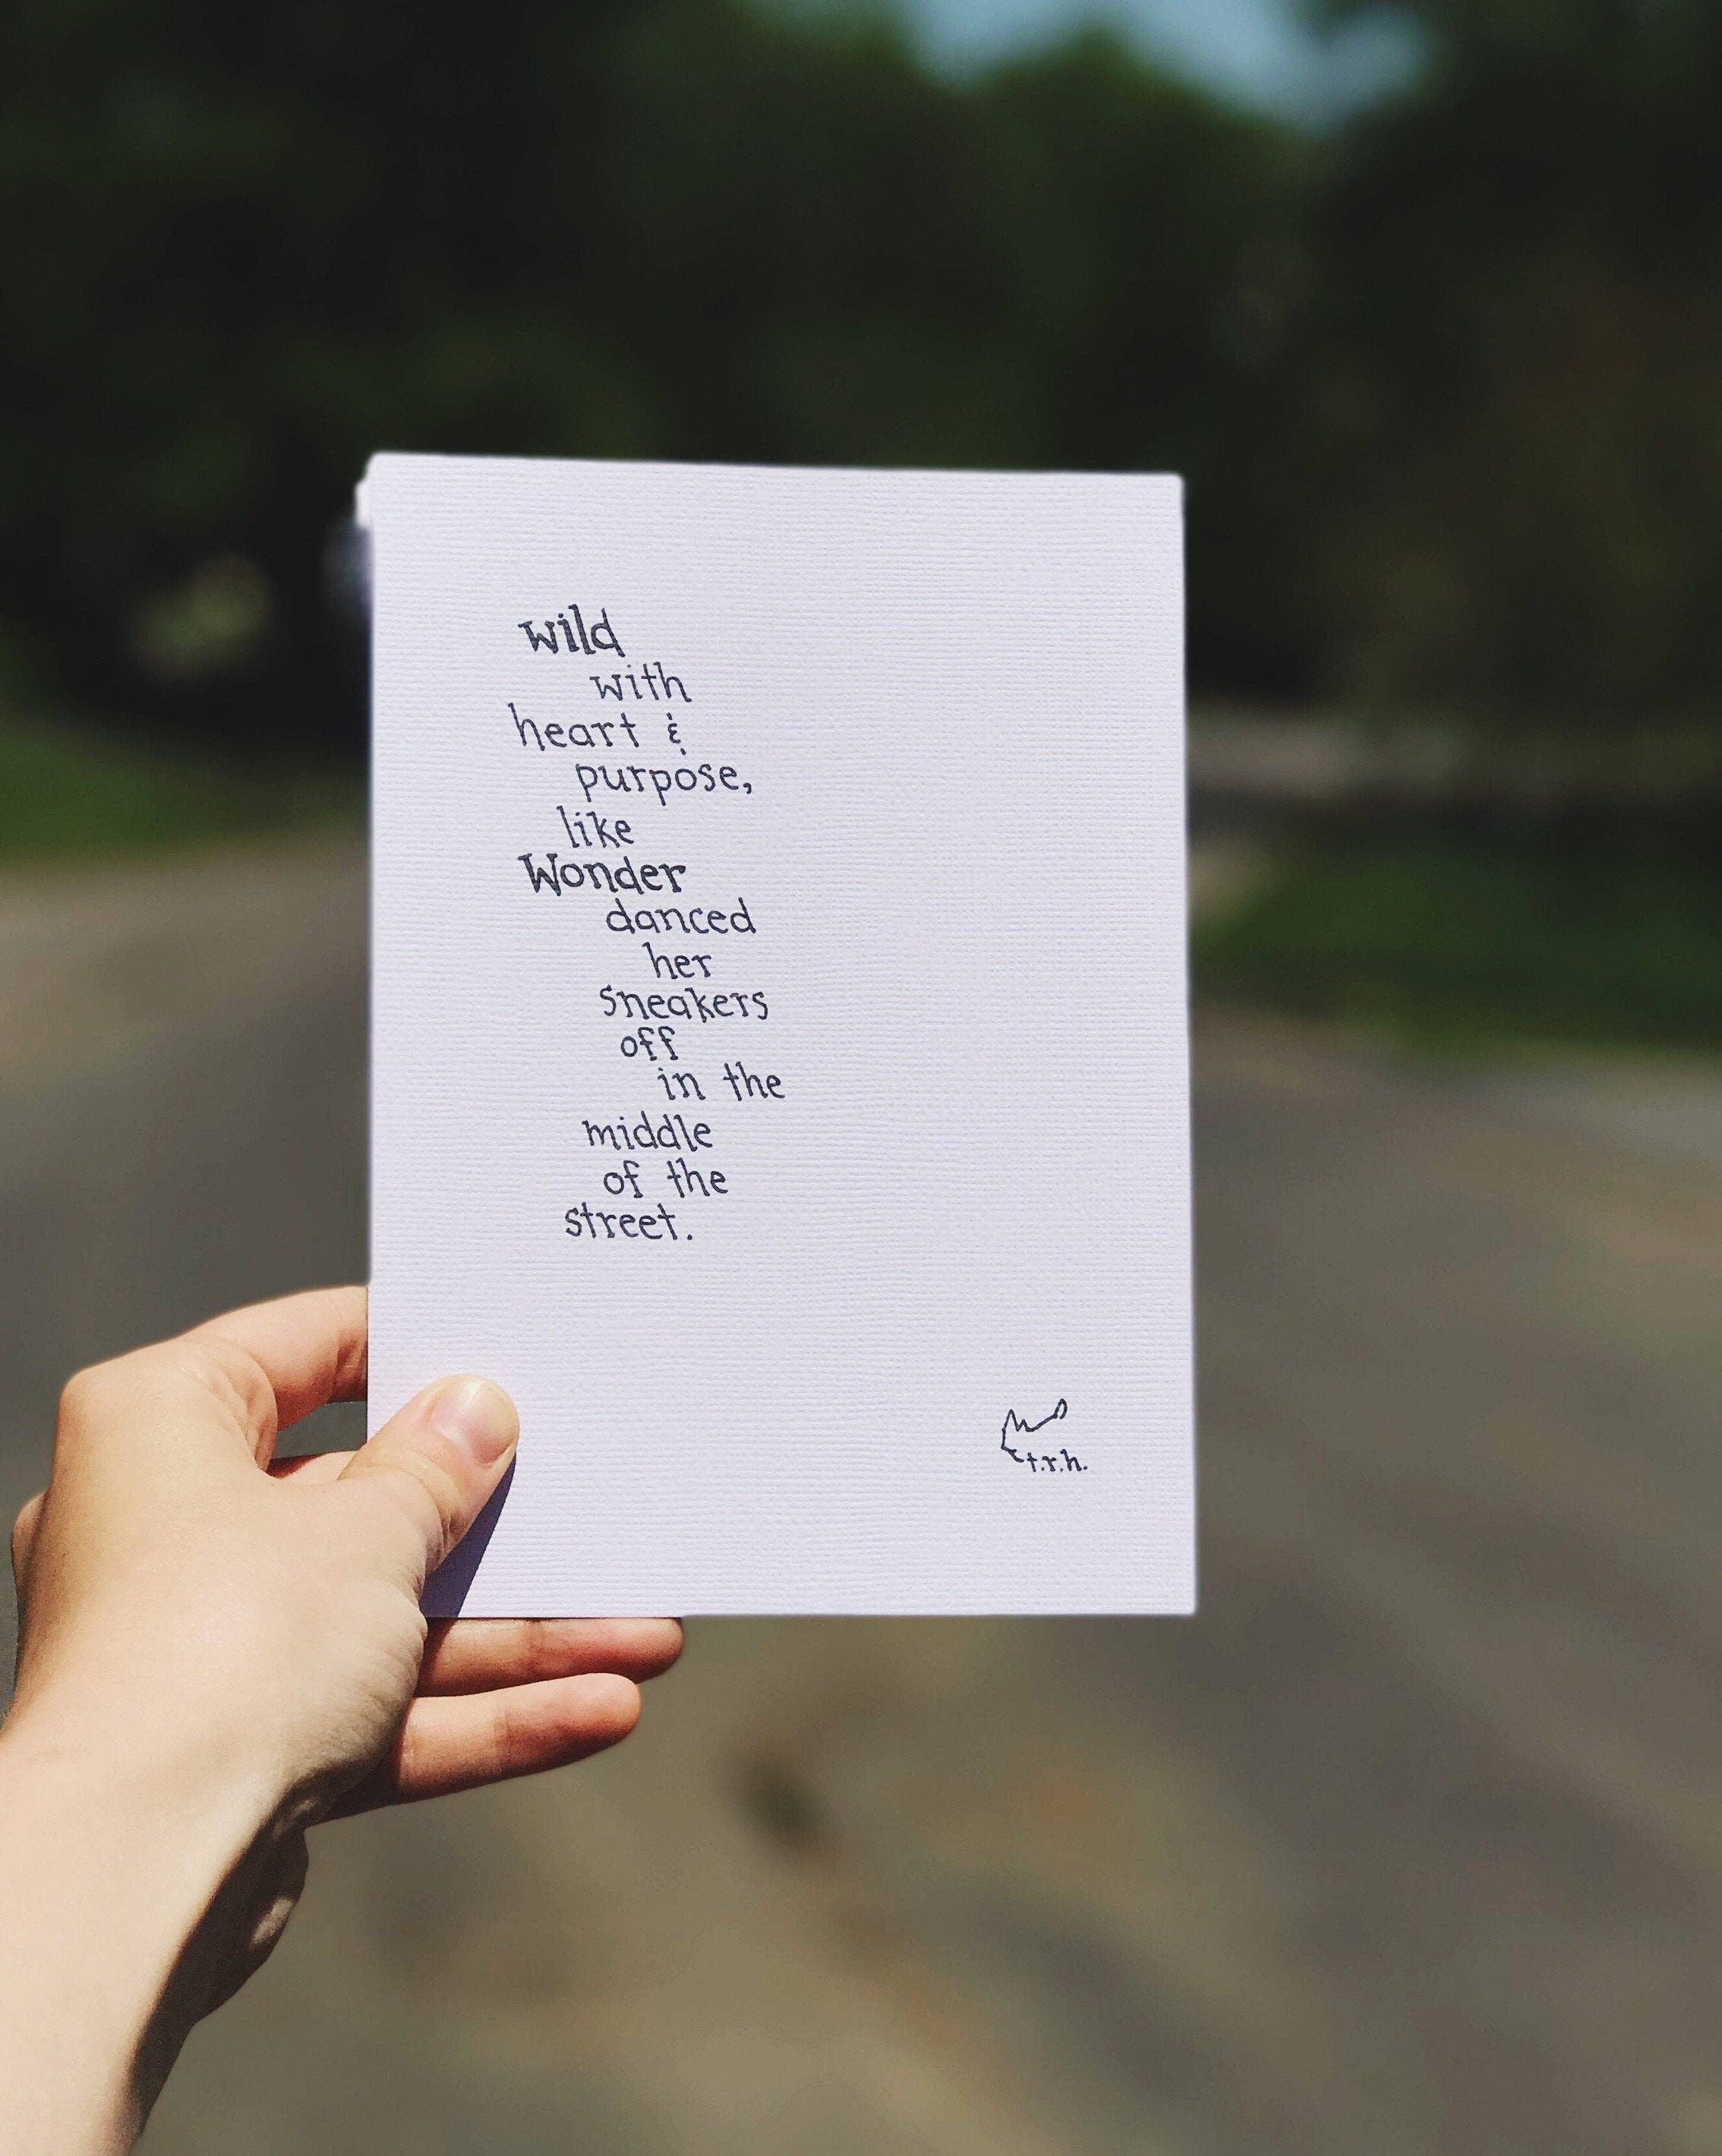 wild
with
heart &
purpose,
like
Wonder
danced
her
sneakers
off
in the
middle
of the
street.
t.r.h.